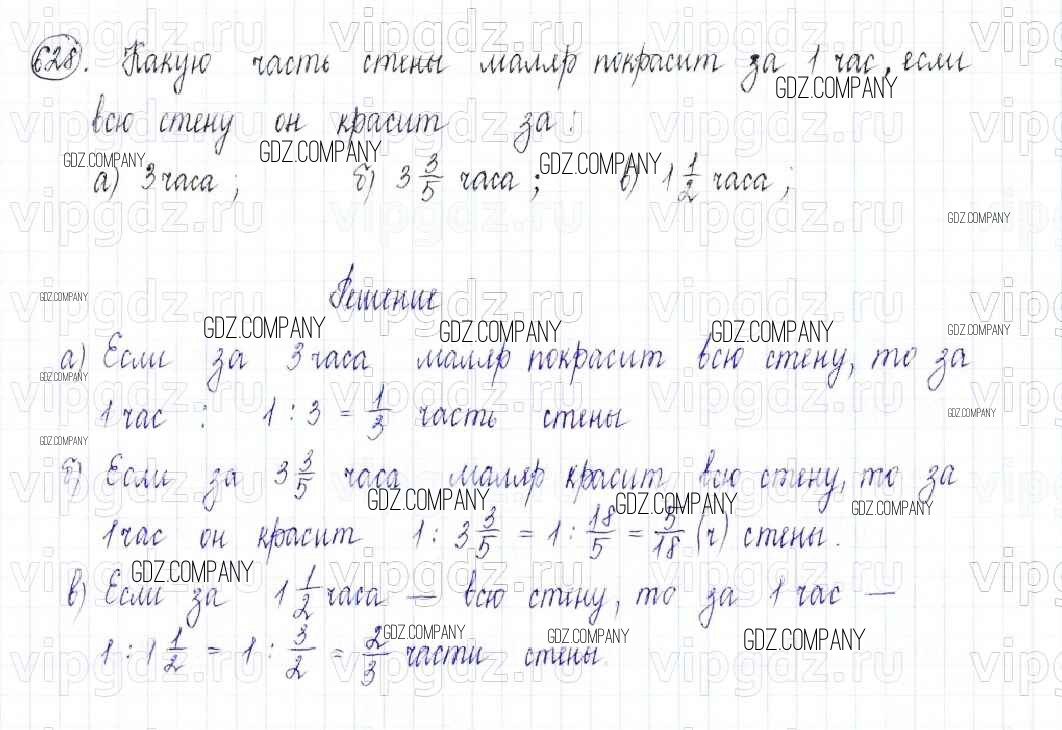 628. Какую часть стены маляр покрасит за 1 час, если
всю стену он красит за:
а) 3 часа; б) 3 3/5 часа; в) 1 1/2 часа;
Решение
а) Если за 3 часа маляр покрасит всю стену, то за
1 час : 1 : 3 = 1/3 часть стены
б) Если за 3 3/5 часа маляр красит всю стену, то за
1 час он красит 1 : 3 3/5 = 1 : 18/5 = 5/18 (ч) стены.
в) Если за 1 1/2 часа — всю стену, то за 1 час —
1 : 1 1/2 = 1 : 3/2 = 2/3 части стены.
vipgdz.ru
GDZ.COMPANY